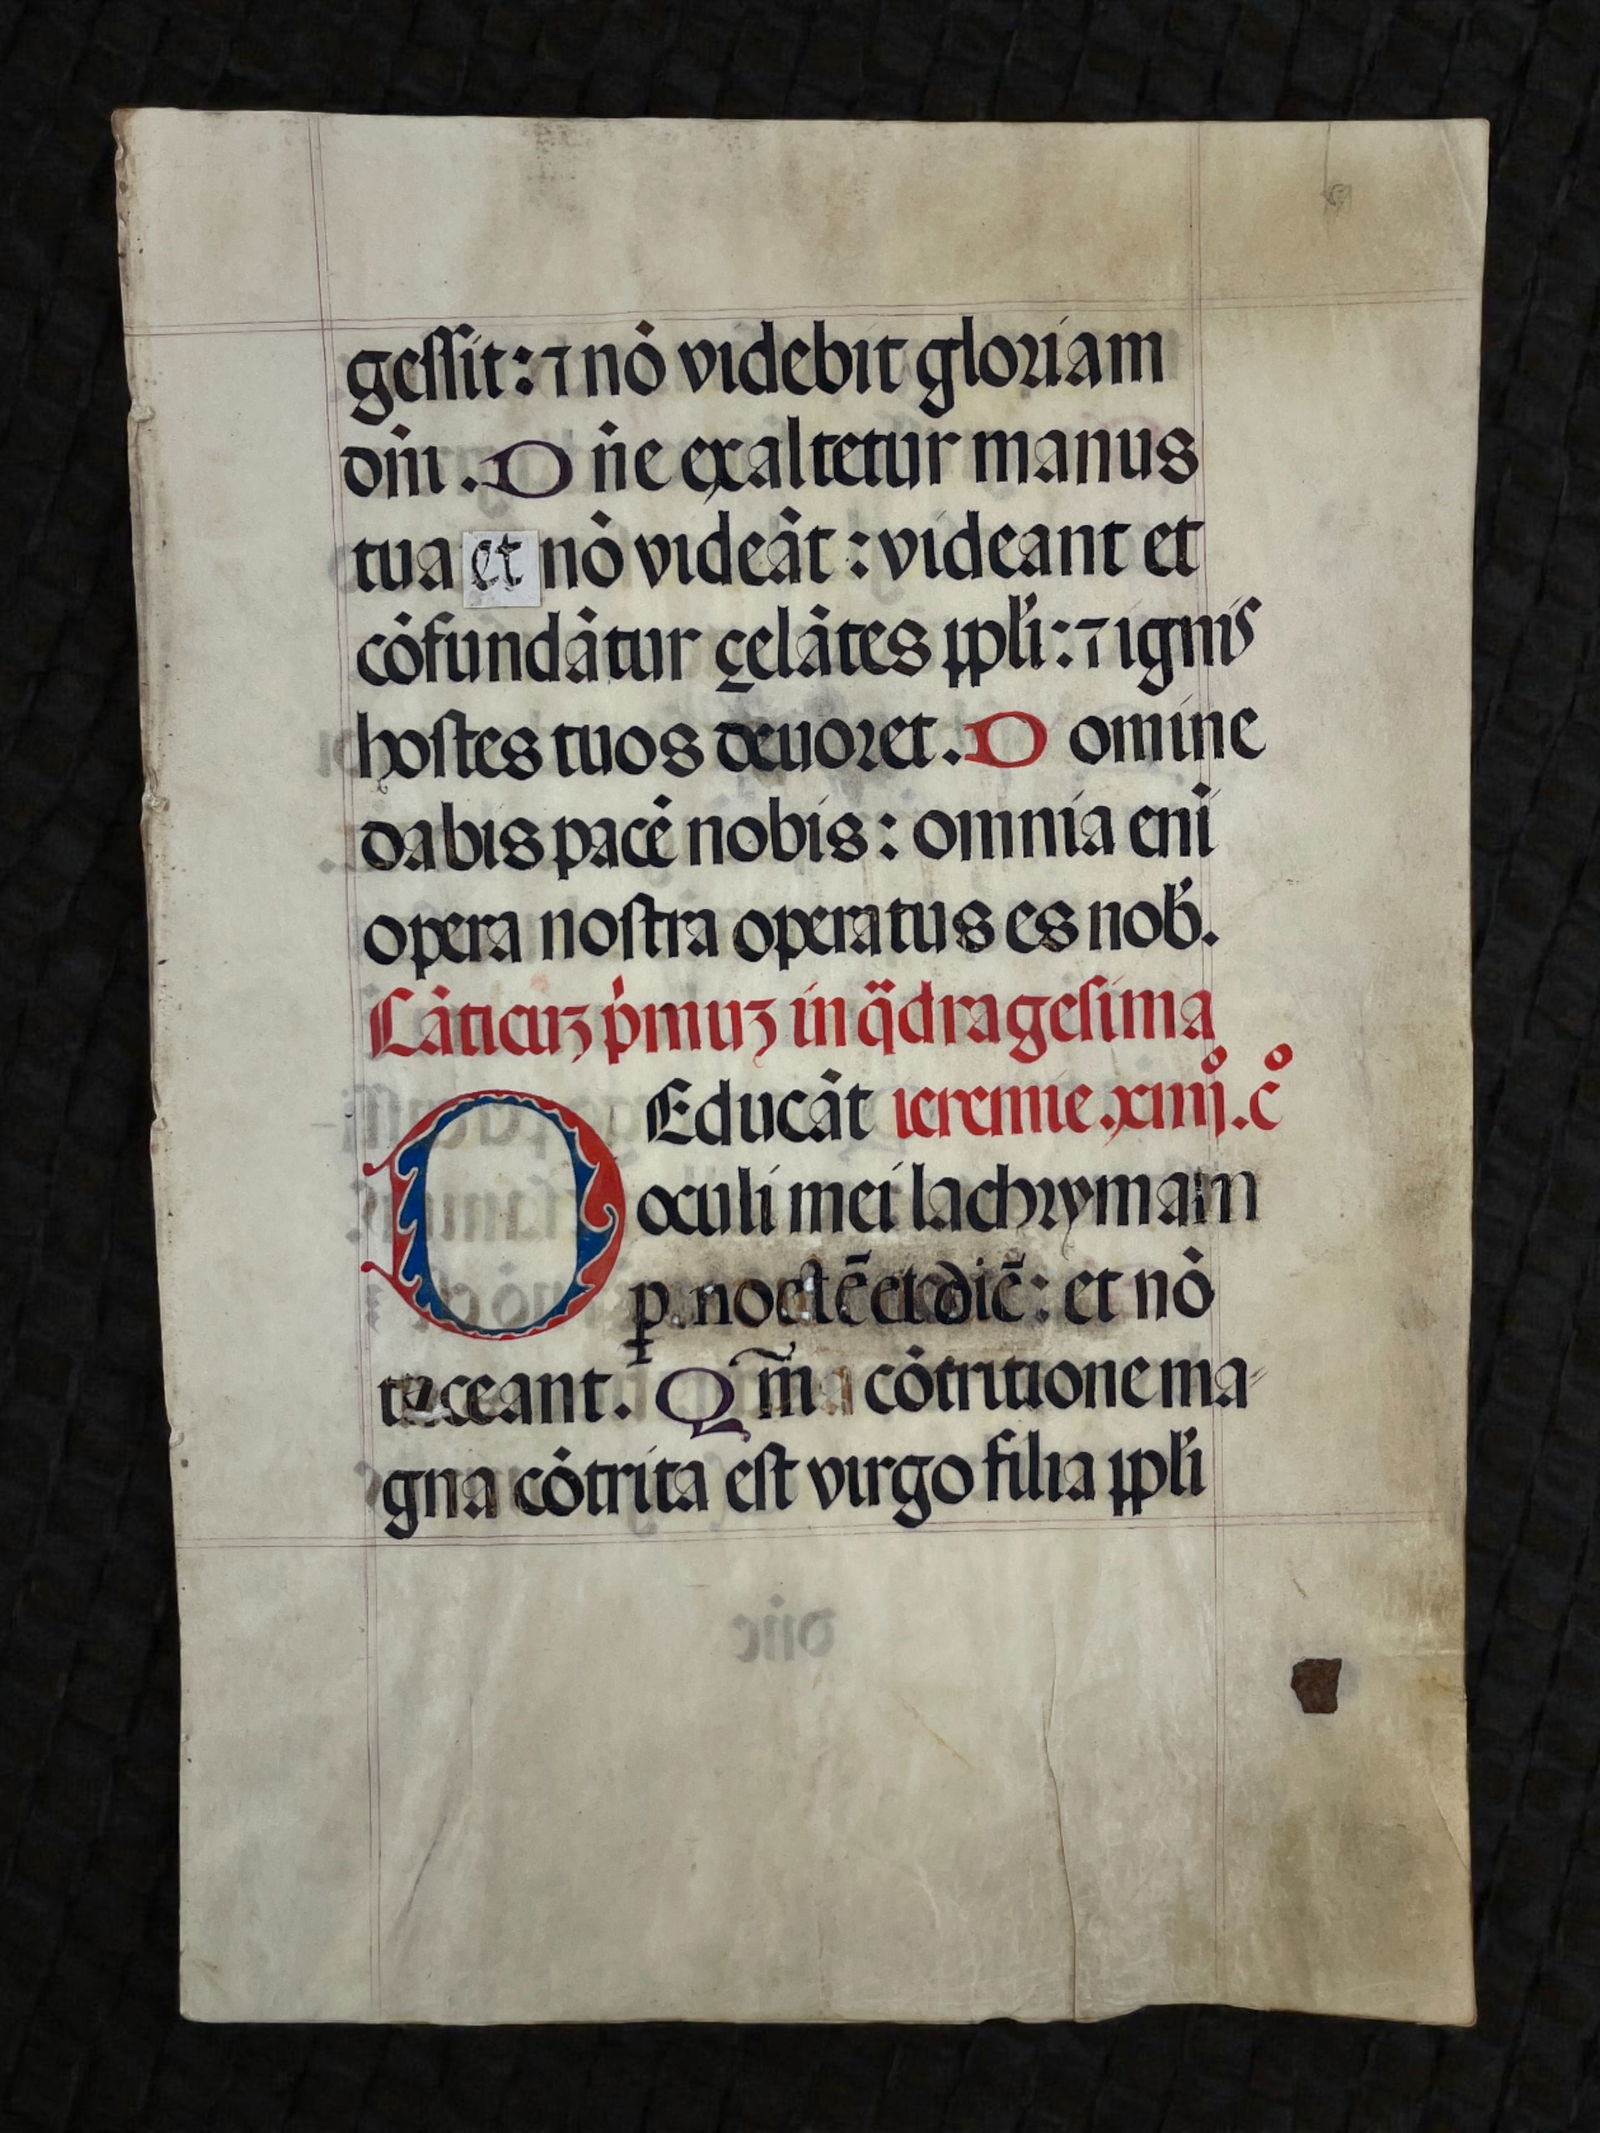 geſſit: ⁊ nō videbit gloꝛiam
dn̄i . D n̄e exaltetur manus
tua et nō videāt : videant et
cōfundātur çelātes ppl̄i: ⁊ ignis
hoſtes tuos deuoꝛet . D omine
dabis pacē nobis : omnia enī
opera noſtra operatus es nob̄.
Cāticuꝫ p̄muꝫ in q̄drageſima
D Educāt ieremie .xiiij.º cº
oculi mei lachꝛymam
ꝑ noctē et diē: et nō
taceant. Q m̄ cōtritione ma-
gna cōtrita eſt virgo filia ppl̄i